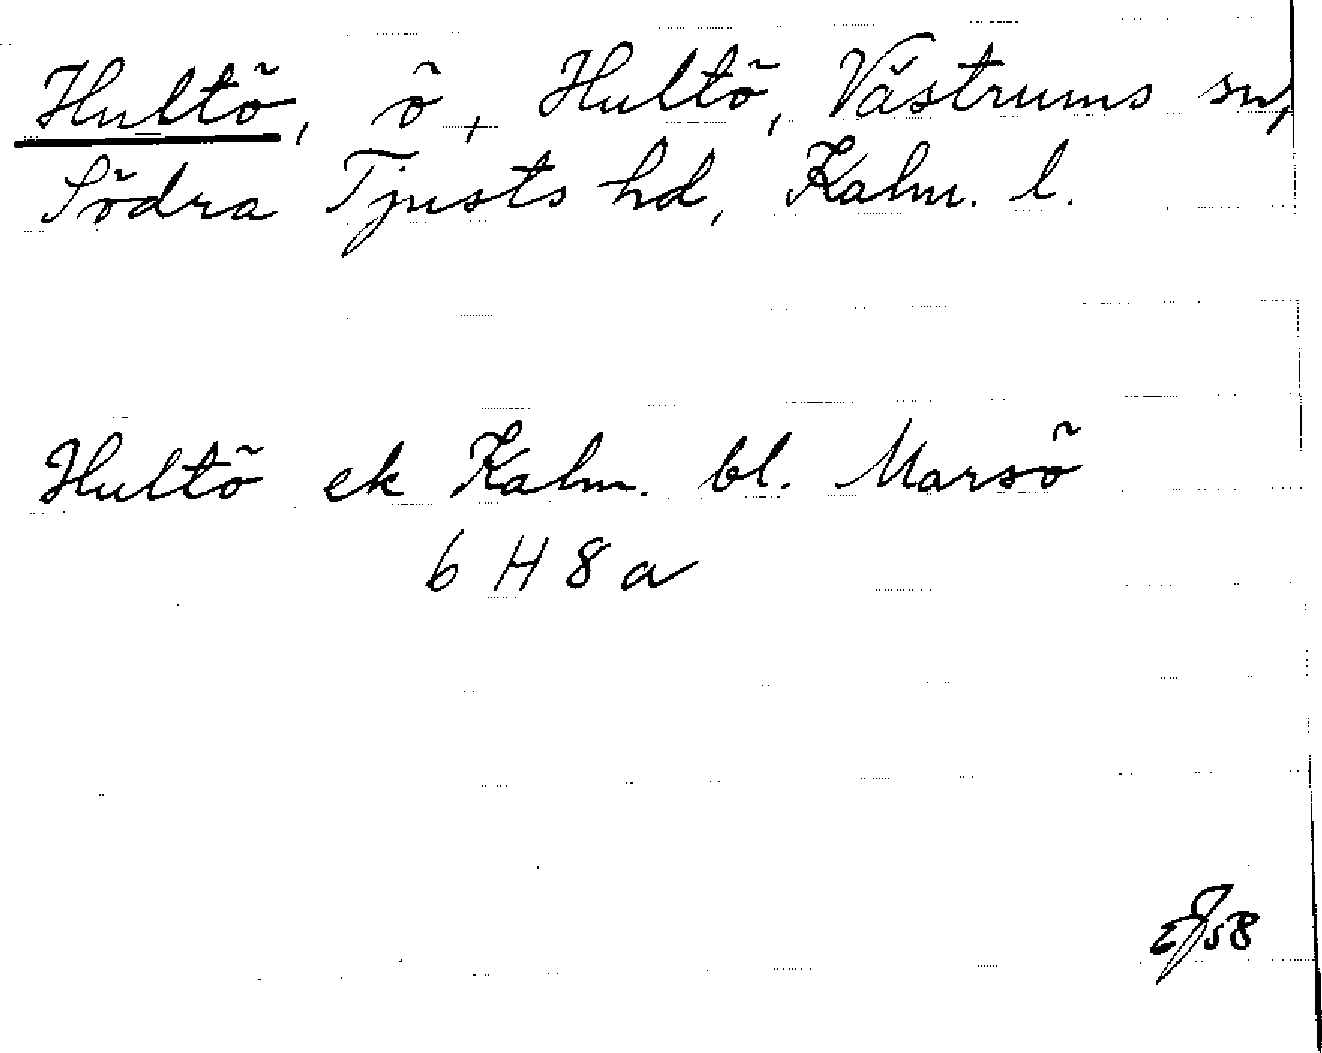 Hultö, ö, Hultö, Västrums sn,
Södra Tjusts hd, Kalm. l.
Hultö ek Kalm. bl. Marsö
6 H 8 a
58